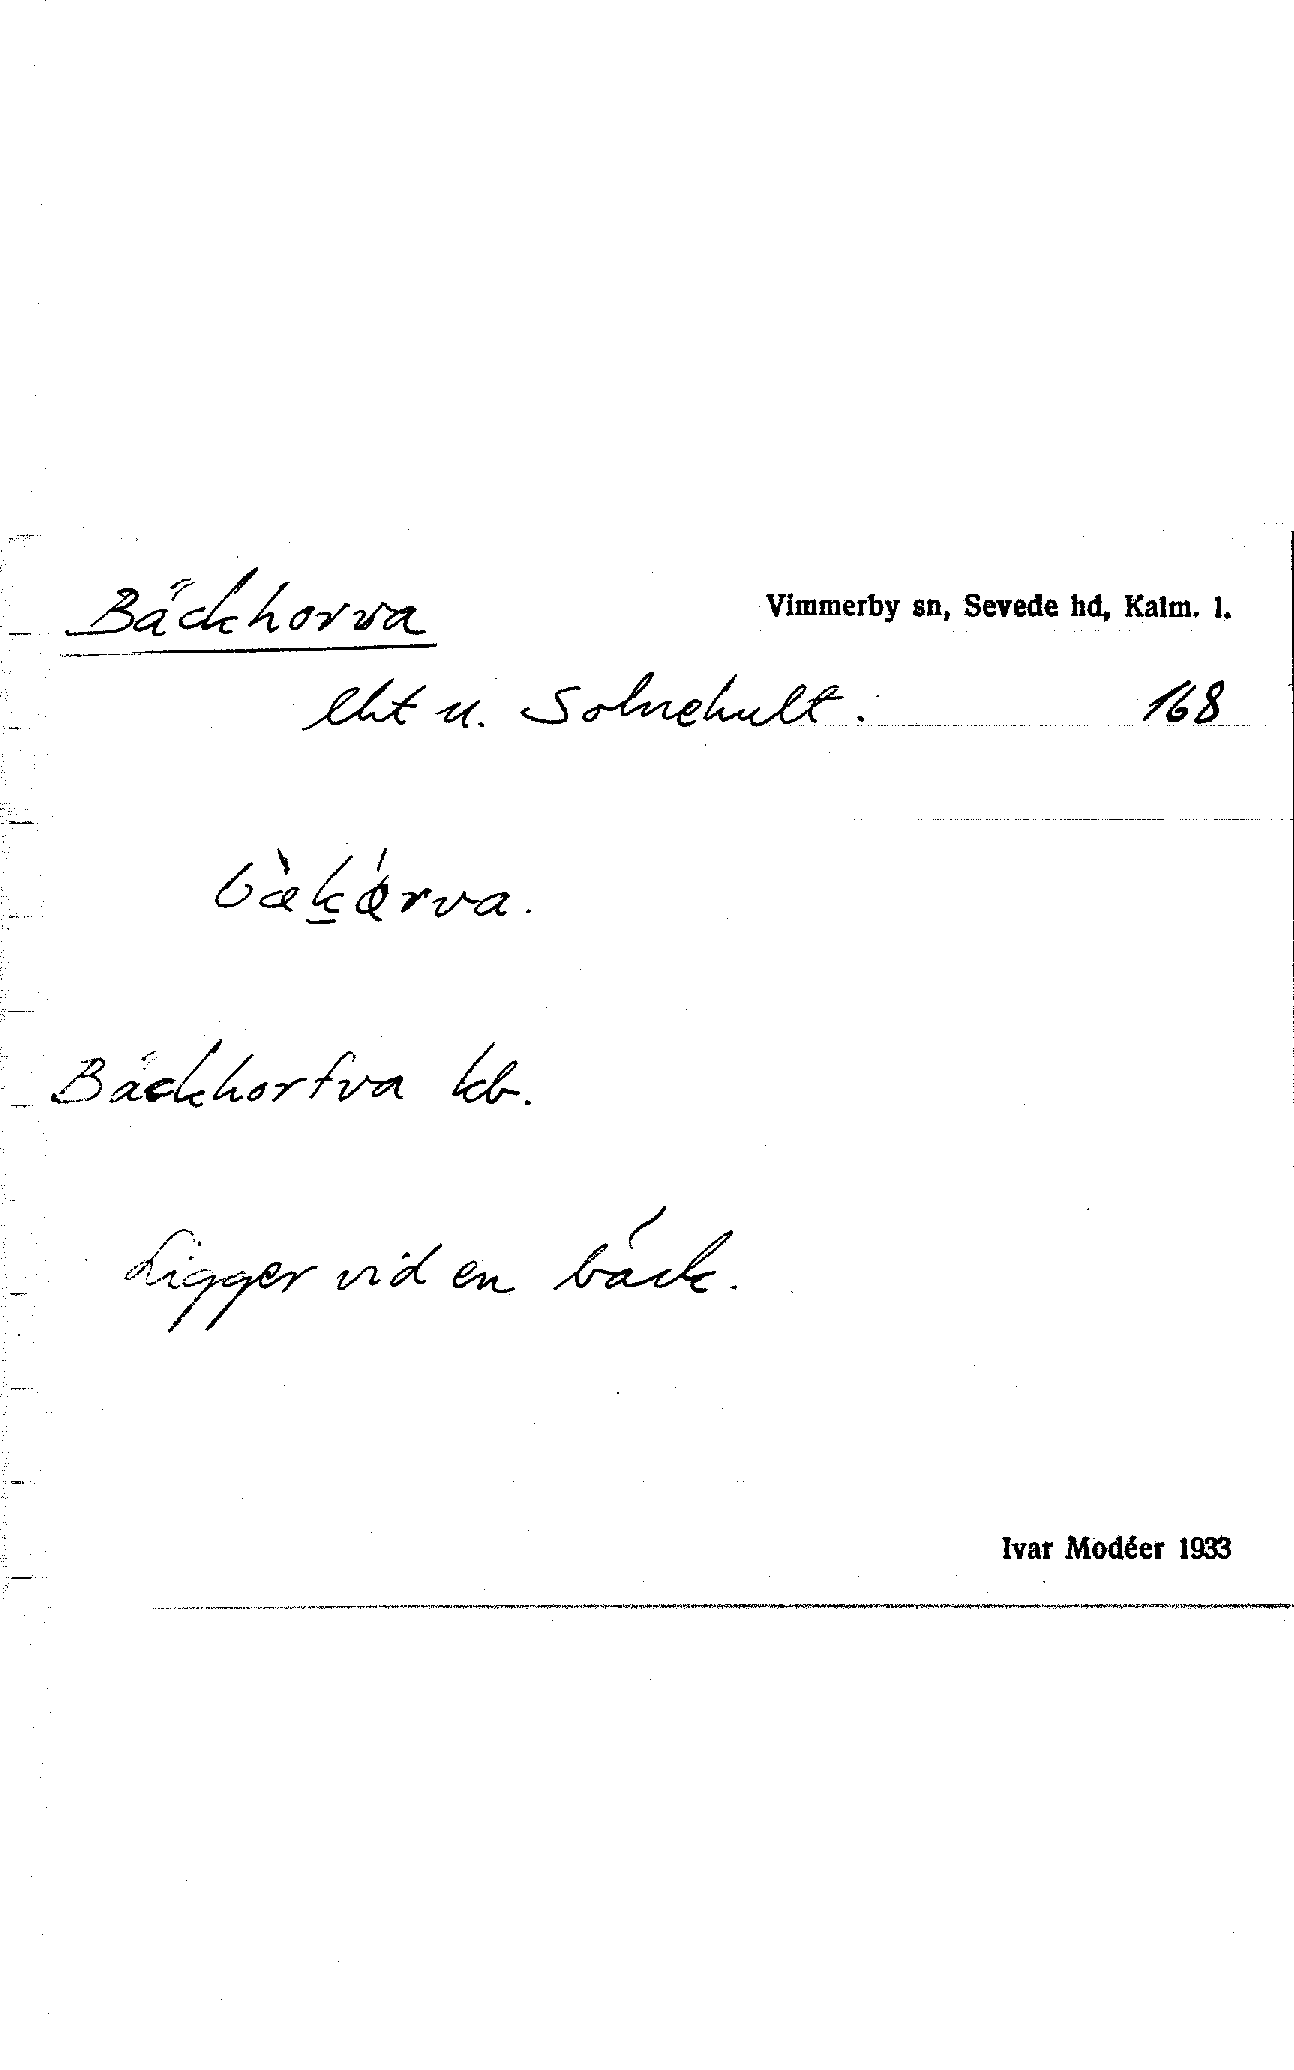 Bäckhorva
Vimmerby sn, Sevede hd, Kalm. l.
lht u. Solnehult. 168
bæ̀k̲ǿrva.
Bäckhorfva kb.
Ligger vid en bäck.
Ivar Modéer 1933